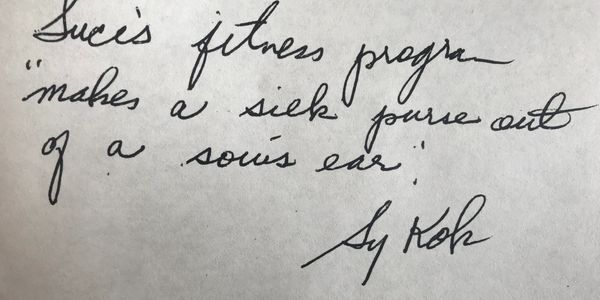 Suci's fitness program
"makes a silk purse out
of a sow's ear".
Sy Kok